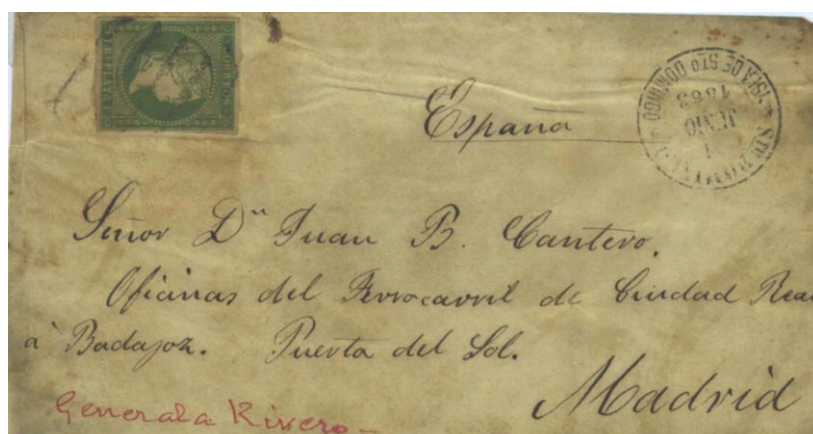 España
ISLA DE Sto DOMINGO
Sto DOMINGO
JUNIO
1863
Señor Dn Juan B. Cantero.
Oficinas del Ferrocarril de Ciudad Rea
a Badajoz. Puerta del Sol.
Madrid
Generala Rivero -